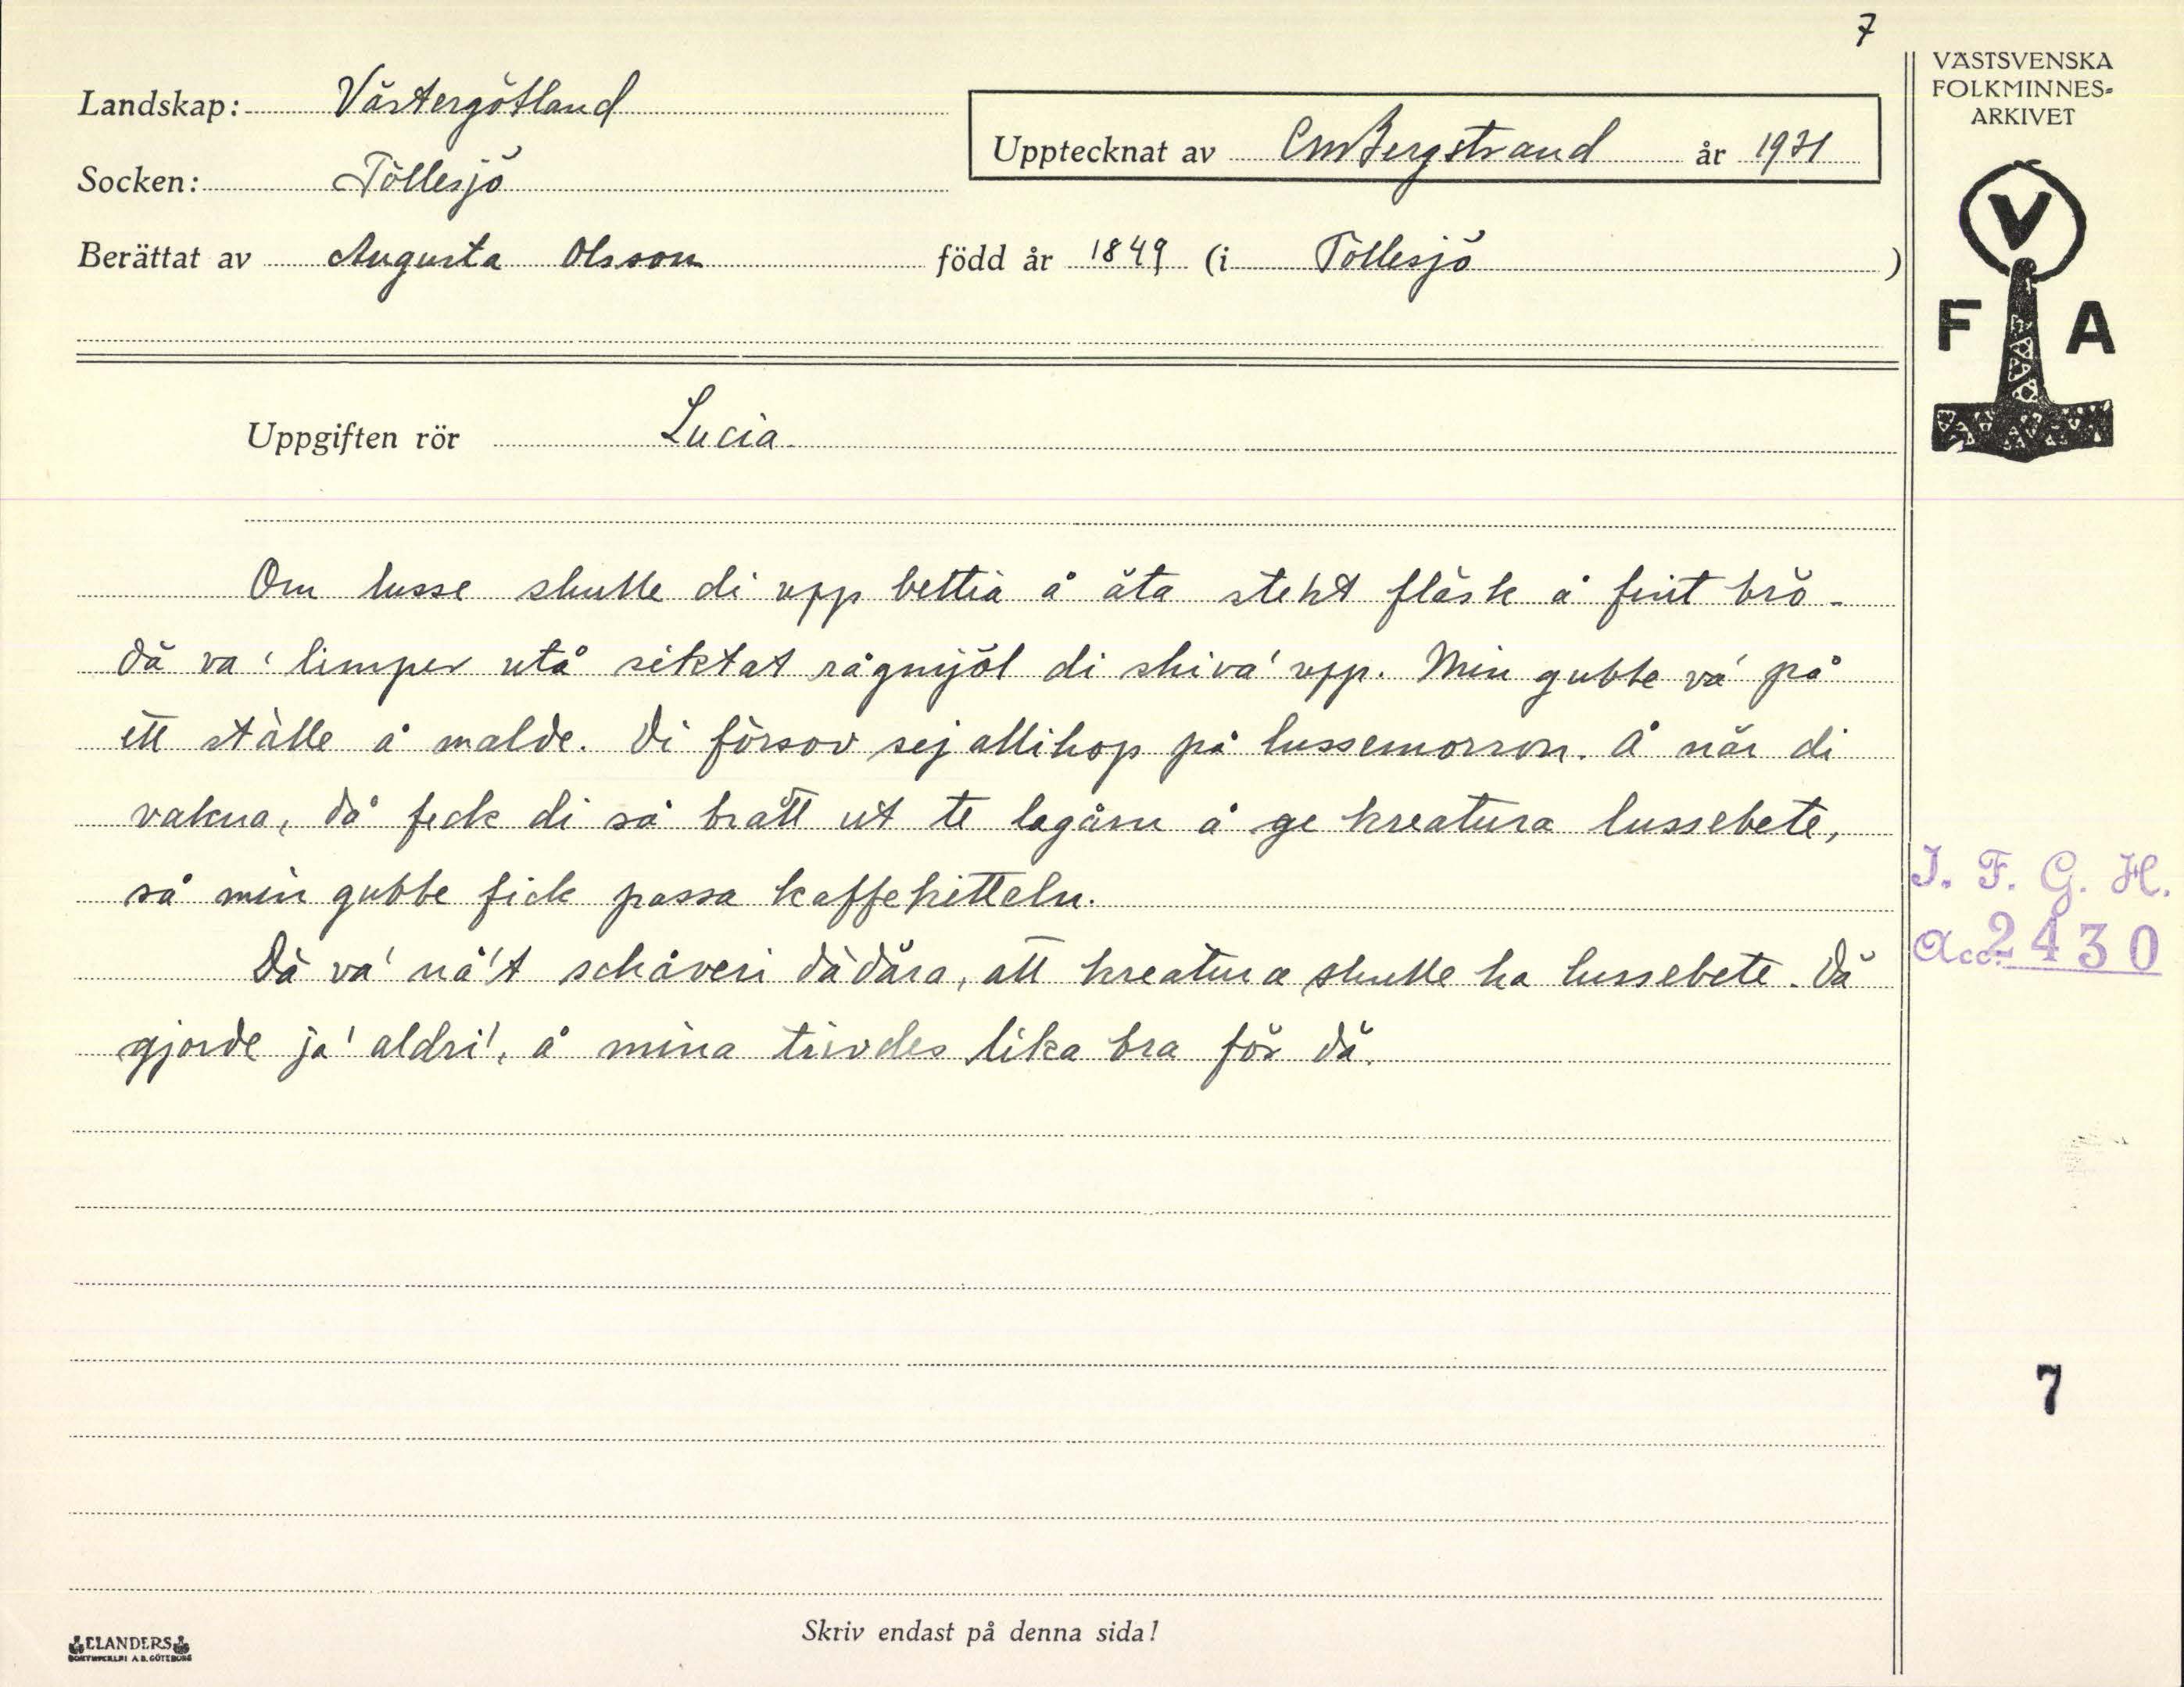 7
VÄSTSVENSKA
FOLKMINNES-
ARKIVET
Landskap: Västergötland
Upptecknat av CM Bergstrand år 1931
Socken: Töllesjö
Berättat av Augusta Olsson född år 1849 (i Töllesjö)
V
F A
Uppgiften rör Lucia
Om lusse skulle di upp bettia å äta stekt fläsk å fint brö -
dä va' limper utå siktat rågmjöl di skiva' upp. Min gubbe va' på
ett ställe å malde. Di försov sej allihop på lussemorron. Å när di
vakna, då feck di så brått ut te lagårn å ge kreatura lussebete,
så min gubbe fick passa kaffekitteln.
Dä va' nå't schåveri dädära, att kreatura skulle ha lussebete. Dä
gjorde ja' aldri', å mina trivdes lika bra för dä.
I. F. G. H.
Acc. 2430
7
Skriv endast på denna sida!
ELANDERS
BOKTRYCKERI A.B. GÖTEBORG